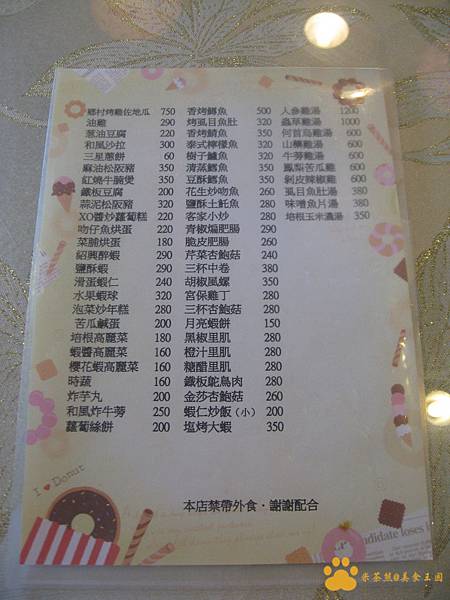 鄉村烤雞佐地瓜 750 香烤鱈魚 500 人參雞湯 1200
油雞 290 烤虱目魚肚 320 蟲草雞湯 1000
蔥油豆腐 220 香烤鯖魚 220 何首烏雞湯 600
和風沙拉 300 泰式檸檬魚 320 山藥雞湯 600
三星蔥餅 60 樹子鱸魚 320 牛蒡雞湯 600
麻油松阪豬 320 清蒸鱈魚 350 鳳梨苦瓜雞 600
紅燒牛腩煲 350 豆酥鱈魚 350 剝皮辣椒雞 600
鐵板豆腐 200 花生炒吻魚 260 虱目魚肚湯 380
蒜泥松阪豬 320 鹽酥土魠魚 280 味噌魚片湯 380
XO醬炒蘿蔔糕 220 客家小炒 280 培根玉米濃湯 350
吻仔魚烘蛋 220 青椒煸肥腸 290
菜脯烘蛋 180 脆皮肥腸 260
紹興醉蝦 290 芹菜杏鮑菇 240
鹽酥蝦 290 三杯中卷 380
滑蛋蝦仁 240 胡椒風螺 350
水果蝦球 320 宮保雞丁 280
泡菜炒年糕 280 三杯杏鮑菇 240
苦瓜鹹蛋 200 月亮蝦餅 150
培根高麗菜 180 黑椒里肌 280
蝦醬高麗菜 160 橙汁里肌 280
櫻花蝦高麗菜 160 糖醋里肌 280
時蔬 160 鐵板鴕鳥肉 280
炸芋丸 200 金莎杏鮑菇 260
和風炸牛蒡 250 蝦仁炒飯（小） 200
蘿蔔絲餅 200 塩烤大蝦 350
本店禁帶外食．謝謝配合
I ♥ Donut
candidate loses
米茶熊@美食王國